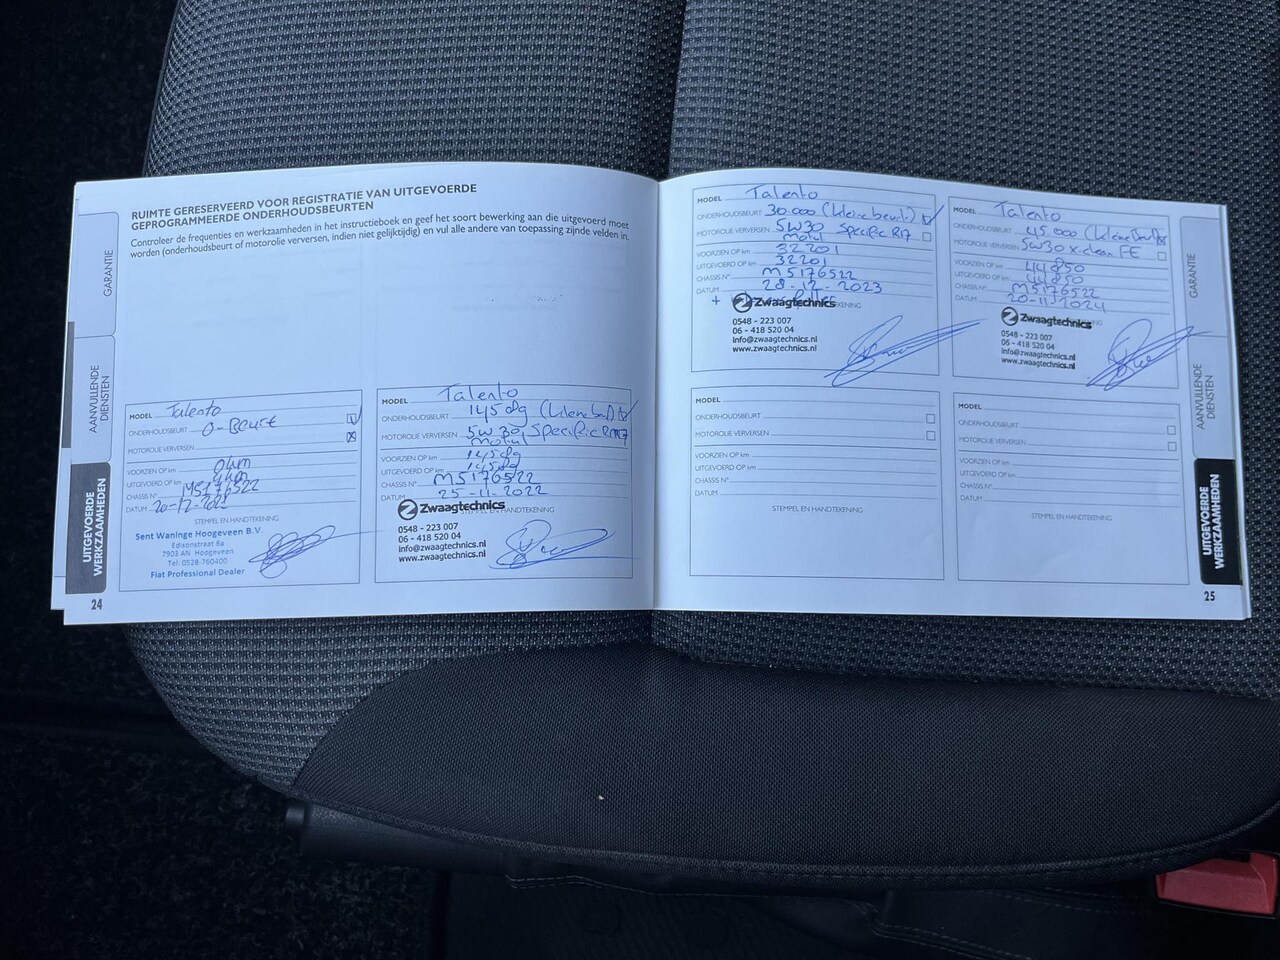 RUIMTE GERESERVEERD VOOR REGISTRATIE VAN UITGEVOERDE
GEPROGRAMMEERDE ONDERHOUDSBEURTEN
Controleer de frequenties en werkzaamheden in het instructieboek en geef het soort bewerking aan die uitgevoerd moet
worden (onderhoudsbeurt of motorolie verversen, indien niet gelijktijdig) en vul alle andere van toepassing zijnde velden in.
GARANTIE
AANVULLENDE
DIENSTEN
UITGEVOERDE
WERKZAAMHEDEN
MODEL Talento
ONDERHOUDSBEURT 0-Beurt
MOTOROLIE VERVERSEN
VOORZIEN OP km 0km
UITGEVOERD OP km
CHASSIS N° M5176522
DATUM 20-12-2021
STEMPEL EN HANDTEKENING
Sent Waninge Hoogeveen B.V.
Edisonstraat 8a
7903 AN Hoogeveen
Tel. 0528-760400
Fiat Professional Dealer
24
MODEL Talento
ONDERHOUDSBEURT (kleine beurt)
MOTOROLIE VERVERSEN 5W30 Specific
Motul
VOORZIEN OP km
UITGEVOERD OP km
CHASSIS N° M5176522
DATUM 25-11-2022
STEMPEL EN HANDTEKENING
Zwaagtechnics
0548 - 223 007
06 - 418 520 04
Info@zwaagtechnics.nl
www.zwaagtechnics.nl
MODEL Talento
ONDERHOUDSBEURT 30.000 (kleine beurt)
MOTOROLIE VERVERSEN 5W30 Specific R17
Motul
VOORZIEN OP km 32201
UITGEVOERD OP km 32201
CHASSIS N° M5176522
DATUM 28-12-2023
Zwaagtechnics
0548 - 223 007
06 - 418 520 04
Info@zwaagtechnics.nl
www.zwaagtechnics.nl
MODEL Talento
ONDERHOUDSBEURT 45.000 (kleine beurt)
MOTOROLIE VERVERSEN 5W30 x clean FE
VOORZIEN OP km 44850
UITGEVOERD OP km 44850
CHASSIS N° M5176522
DATUM 20-11-2024
Zwaagtechnics
0548 - 223 007
06 - 418 520 04
Info@zwaagtechnics.nl
www.zwaagtechnics.nl
MODEL
ONDERHOUDSBEURT
MOTOROLIE VERVERSEN
VOORZIEN OP km
UITGEVOERD OP km
CHASSIS N°
DATUM
STEMPEL EN HANDTEKENING
MODEL
ONDERHOUDSBEURT
MOTOROLIE VERVERSEN
VOORZIEN OP km
UITGEVOERD OP km
CHASSIS N°
DATUM
STEMPEL EN HANDTEKENING
GARANTIE
AANVULLENDE
DIENSTEN
UITGEVOERDE
WERKZAAMHEDEN
25